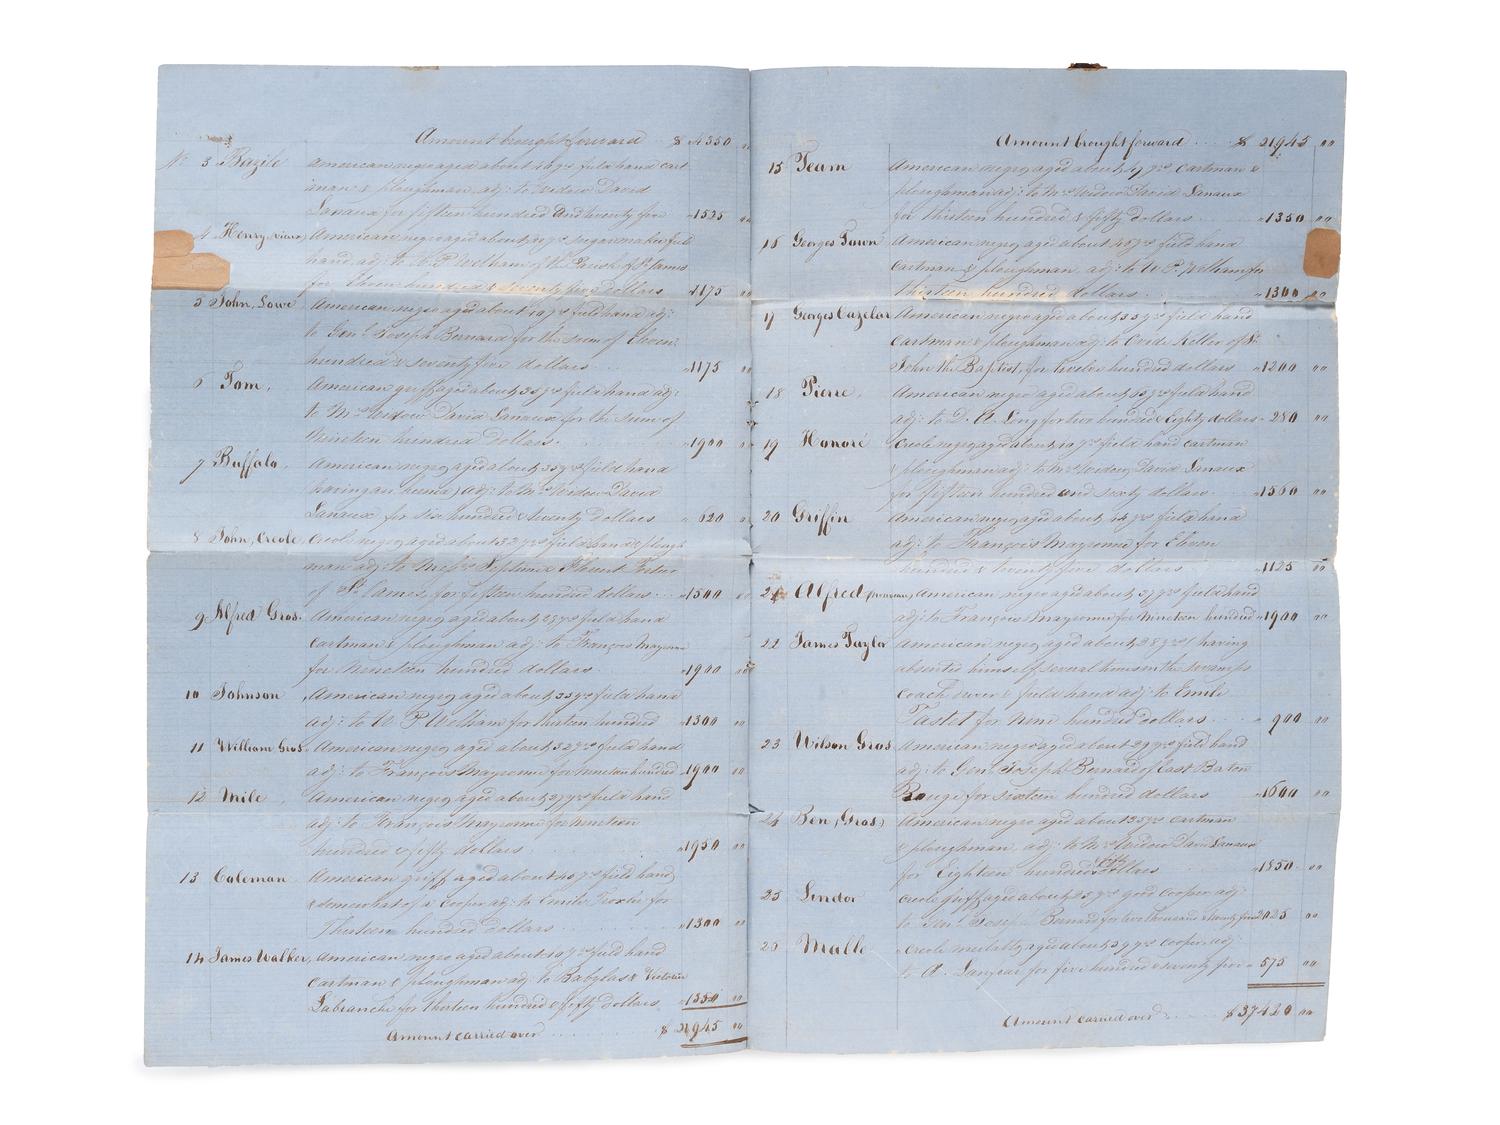 Amount brought forward $ 4350
No 3 Bazile American negro aged about yrs field hand cart
man & ploughman adj: to Widow David
Lanaux for fifteen hundred and twenty five " 1525 00
4 Henry American negro aged about yrs sugarmaker field
hand adj: to W. P. Welham of the Parish of St James
for Eleven hundred & seventy five dollars " 1175 00
5 John, Lowe American negro aged about yrs field hand adj:
to Genl Joseph Bernard for the sum of Eleven
hundred & seventy five dollars " 1175 00
6 Tom, American griff aged about 35 yrs field hand adj:
to Mrs Widow David Lanaux for the sum of
Nineteen hundred dollars " 1900 00
7 Buffalo, American negro aged about 35 yrs field hand
having an adj: to Mrs Widow David
Lanaux for six hundred & twenty dollars " 620
8 John, Creole, Creole negro aged about 32 yrs field hand & plough
man adj: to Messrs Septime & Florent Fortier
of St James for fifteen hundred dollars " 1500 00
9 Alfred Gros. American negro aged about yrs field hand
Cartman & ploughman adj: to François Mayronne
for Nineteen hundred dollars " 1900 00
10 Johnson American negro aged about 35 yrs field hand
adj: to W P Welham for thirteen hundred " 1300 00
11 William Gros. American negro aged about 32 yrs field hand
adj: to François Mayronne for nineteen hundred " 1900 00
12 Mile, American negro aged about yrs field hand
adj: to François Mayronne for nineteen
hundred & fifty dollars " 1950 00
13 Coleman American griff aged about 40 yrs field hand
& somewhat of a Cooper adj: to Emile Troxler for
Thirteen hundred dollars " 1300 00
14 James Walker, American negro aged about yrs field hand
Cartman & ploughman adj: to Babylas & Victorin
Labranche for thirteen hundred & fifty dollars " 1350 00
Amount carried over $ 21945 00
Amount brought forward $ 21945 00
15 Team American negro aged about yrs Cartman &
ploughman adj: to Mrs Widow David Lanaux
for thirteen hundred & fifty dollars " 1350 00
16 Georges Town American negro aged about 40 yrs field hand
Cartman & ploughman adj: to W. P. Welham for
thirteen hundred dollars " 1300 00
17 Georges Cazelar American negro aged about 35 yrs field hand
Cartman & ploughman adj: to Ovide Keller of St
John the Baptist, for twelve hundred dollars " 1200 00
18 Pierre, American negro aged about 55 yrs field hand
adj: to D. A. Long for two hundred & Eighty dollars " 280 00
19 Honoré Creole negro aged about yrs field hand Cartman
& ploughman adj: to Mrs Widow David Lanaux
for fifteen hundred and sixty dollars " 1560 00
20 Griffin American negro aged about yrs field hand
adj: to François Mayronne for Eleven
hundred & twenty five dollars " 1125 00
21 Alfred American negro aged about yrs field hand
adj: to François Mayronne for Nineteen hundred " 1900 00
22 James Taylor American negro aged about 38 yrs / having
absented himself several times in the swamps
Coach driver & field hand adj: to Emile
Tastet for Nine hundred dollars " 900 00
23 Wilson Gros American negro aged about 29 yrs field hand
adj: to Genl Joseph Bernard of East Baton
Rouge for sixteen hundred dollars " 1600 00
24 Ben, (Gros) American negro aged about 25 yrs Cartman
& ploughman adj: to Mrs Widow David Lanaux
for Eighteen hundred fifty dollars " 1850 00
25 Lindor Creole griff aged about 25 yrs good Cooper adj:
to Genl Joseph Bernard for two thousand & twenty five 2025 00
26 Mallé Creole mulatto aged about yrs Cooper adj:
to A. for five hundred & seventy five " 575 00
Amount carried over $ 37420 00